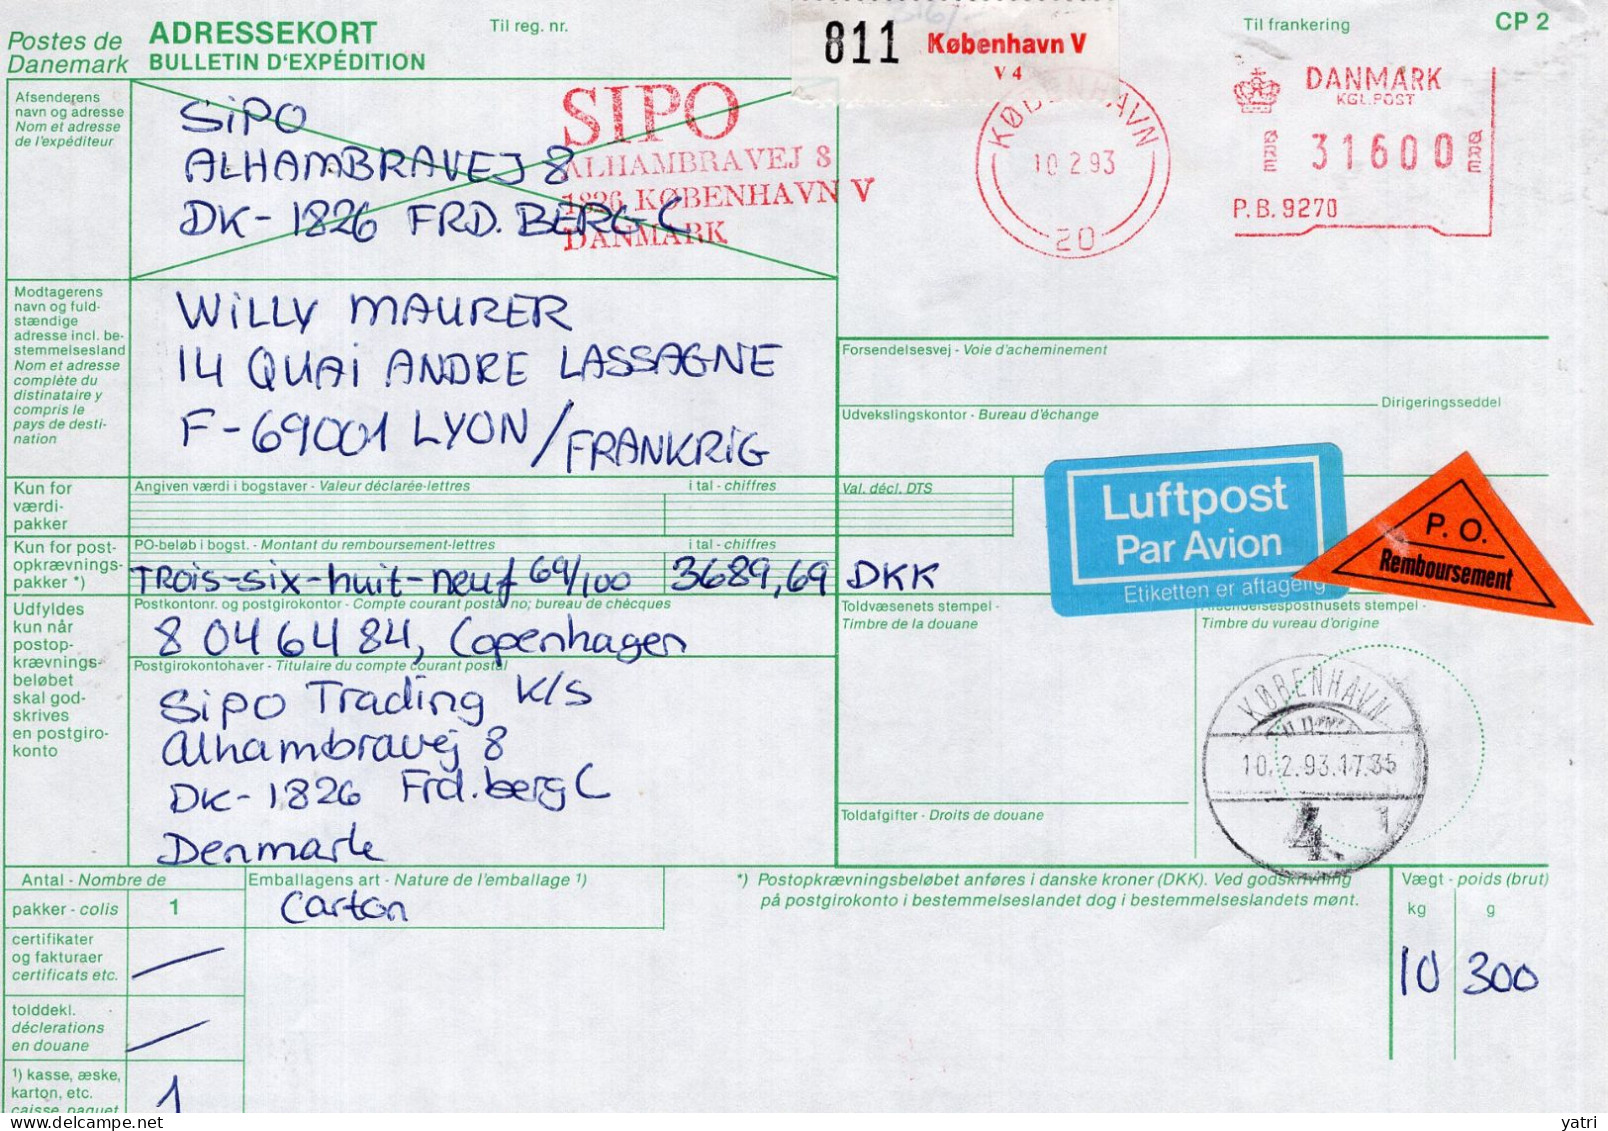 Postes de
Danemark
ADRESSEKORT
BULLETIN D'EXPÉDITION
Til reg. nr.
811 København V
V 4
Til frankering
CP 2
Afsenderens
navn og adresse
Nom et adresse
de l'expéditeur
SIPO
ALHAMBRAVEJ 8
DK-1826 FRD. BERG C
SIPO
ALHAMBRAVEJ 8
1826 KØBENHAVN V
DANMARK
KØBENHAVN
10.2.93
20
DANMARK
KGL.POST
ØRE 31600 ØRE
P.B. 9270
Modtagerens
navn og fuld-
stændige
adresse incl. be-
stemmelsesland
Nom et adresse
complète du
distinataire y
compris le
pays de desti-
nation
WILLY MAURER
14 QUAI ANDRE LASSAGNE
F-69001 LYON / FRANKRIG
Forsendelsesvej - Voie d'acheminement
Dirigeringsseddel
Udvekslingskontor - Bureau d'échange
Kun for
værdi-
pakker
Angiven værdi i bogstaver - Valeur déclarée-lettres
i tal - chiffres
Val. décl. DTS
Luftpost
Par Avion
Etiketten er aftagelig
P. O.
Remboursement
Kun for post-
opkrævnings-
pakker *)
PO-beløb i bogst. - Montant du remboursement-lettres
i tal - chiffres
TROIS-SIX-huit-neuf 69/100 3689,69 DKK
Udfyldes
kun når
postop-
krævnings-
beløbet
skal god-
skrives
en postgiro-
konto
Postkontonr. og postgirokontor - Compte courant postal no; bureau de chècques
8 04 64 84, Copenhagen
Postgirokontohaver - Titulaire du compte courant postal
Sipo Trading K/S
Alhambravej 8
DK-1826 Frd.berg C
Denmark
Toldvæsenets stempel -
Timbre de la douane
Afsendelsesposthusets stempel -
Timbre du vureau d'origine
KØBENHAVN
10.2.93.17.35
4. 1
Toldafgifter - Droits de douane
Antal - Nombre de
pakker - colis
1
Emballagens art - Nature de l'emballage ¹)
Carton
*) Postopkrævningsbeløbet anføres i danske kroner (DKK). Ved godskrivning
på postgirokonto i bestemmelseslandet dog i bestemmelseslandets mønt.
Vægt - poids (brut)
kg g
10 300
certifikater
og fakturaer
certificats etc.
tolddekl.
déclerations
en douane
¹) kasse, æske,
karton, etc.
caisse, paquet
1
delcampe.net
yatri